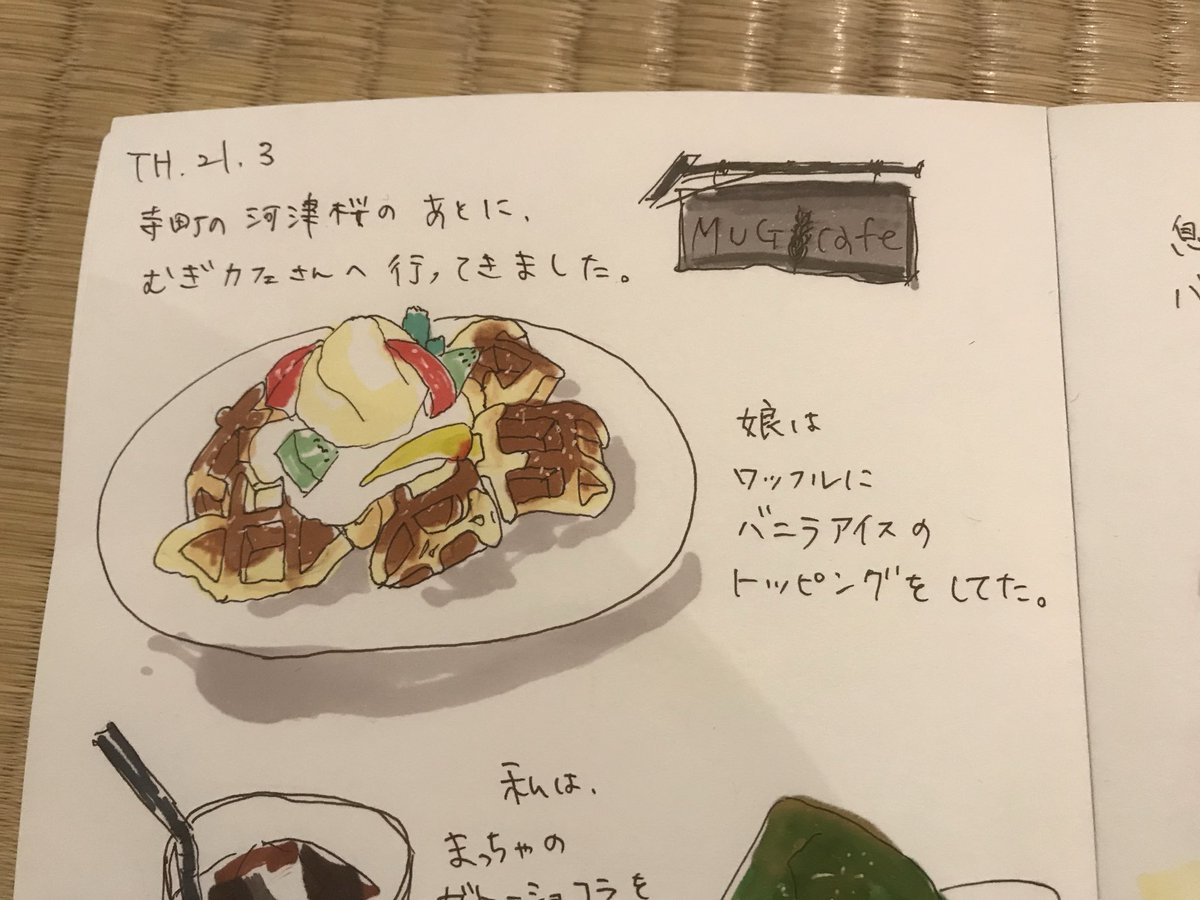 TH. 21. 3
寺町の 河津桜の あとに、
むぎカフェさんへ 行ってきました。
MUGI cafe
娘は
ワッフルに
バニラアイスの
トッピングを してた。
私は、
まっちゃの
ガトーショコラを
息
バ